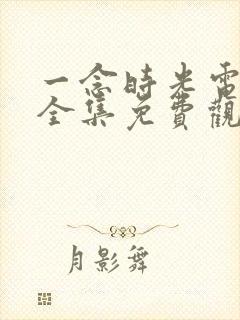 一念時光電
全集免費觀
月影舞